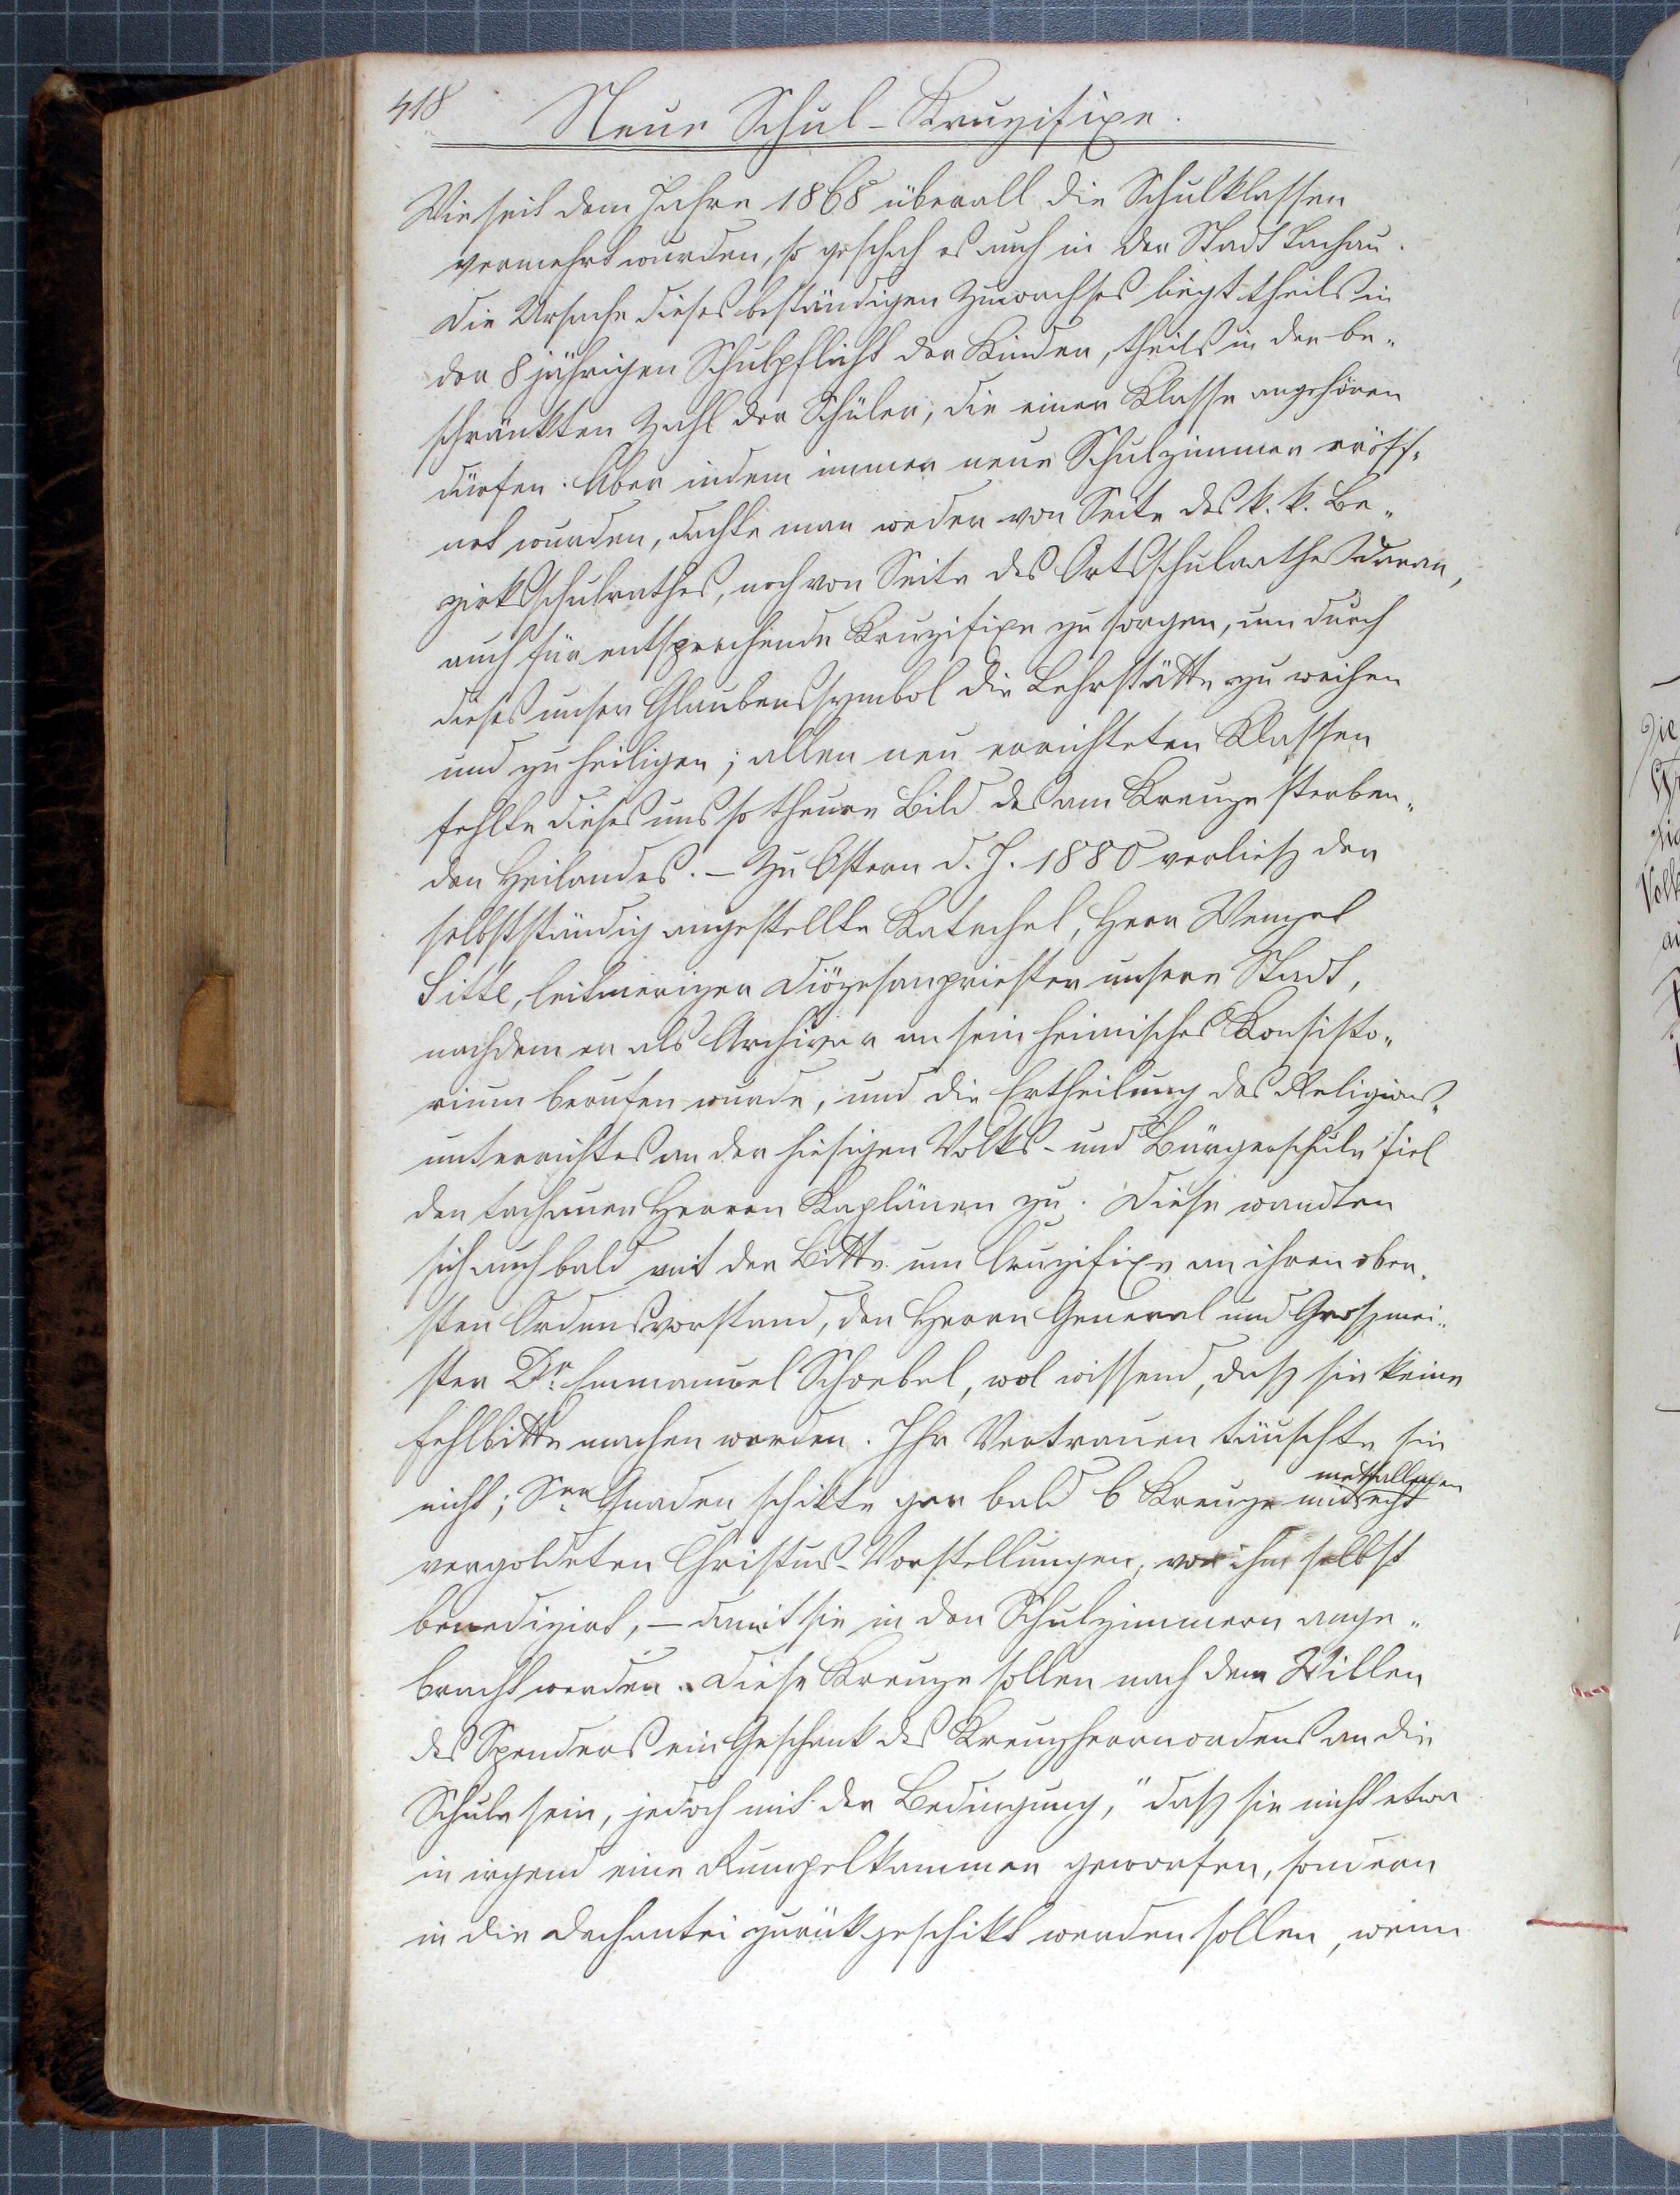 418
Neue Schul-Kruzifixe.
Wie seit dem Jahre 1868 überall die Schulklassen
vermehrt wurden, so geschah es auch in der Stadt Tachau.
Die Ursache dieses beständigen Zuwachses liegt theils in
der 8 jährigen Schulpflicht der Kinder, theils in der be„
schränkten Zahl der Schüler, die einer Klasse angehören
dürfen. Aber indem immer neue Schulzimmer eröff„
net wurden, dachte man weder von Seite des k. k. Be„
zirksschulrathes, noch von Seite des Ortsschulrathes daran,
auch für entsprechende Kruzifixe zu sorgen, um durch
dieses unser Glaubenssymbol die Lehrstätte zu weihen
und zu heiligen; allen neu errichteten Klassen
fehlte dieses uns so theure Bild des am Kreuze sterben„
den Heilandes. – Zu Ostern d. J. 1880 verließ der
selbstständig angestellte Katechet, Herr Wenzel
Sitte, leitmeritzer Diözesanpriester unsere Stadt,
nachdem er als Archivar an sein heimisches Konsisto„
rium berufen wurde, und die Ertheilung des Religions„
unterrichtes an der hiesigen Volks- und Bürgerschule fiel
den tachauer Herren Kaplänen zu. Diese wandten
sich auch bald mit der Bitte um Cruzifixe an ihren ober„
sten Ordensvorstand, den Herrn General und Großmei„
ster Dr. Emmanuel Schoebel, wol wissend, daß sie keine
Fehlbitte machen werden. Ihr Vertrauen täuschte sie
nicht; Sr. Gnaden schikte gar bald 6 Kreuze mit metallenen echt
vergoldeten Christus-Vorstellungen, von ihm selbst
benedizirt, – damit sie in den Schulzimmern ange„
bracht werden. Diese Kreuze sollen nach dem Willen
des Spenders ein Geschenk des Kreuzherrnordens an die
Schule sein, jedoch mit der Bedingung, "daß sie nicht etwa
in irgend eine Rumpelkammer geworfen, sondern
in die Dechantei zurükgeschikt werden sollen, wenn